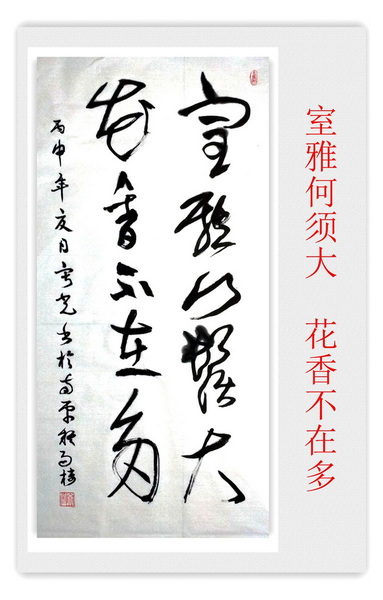 室雅何须大　花香不在多
室雅何须大
花香不在多
丙申年夏日